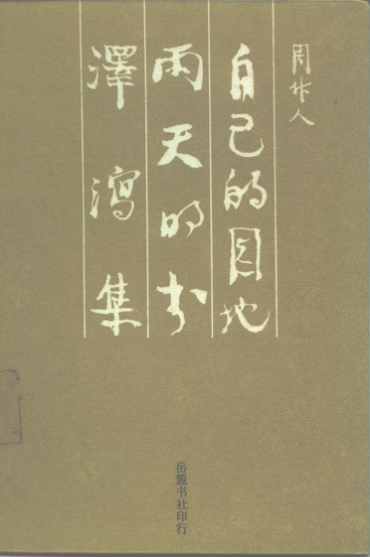 周作人
自己的园地
雨天的书
澤瀉集
岳麓书社印行